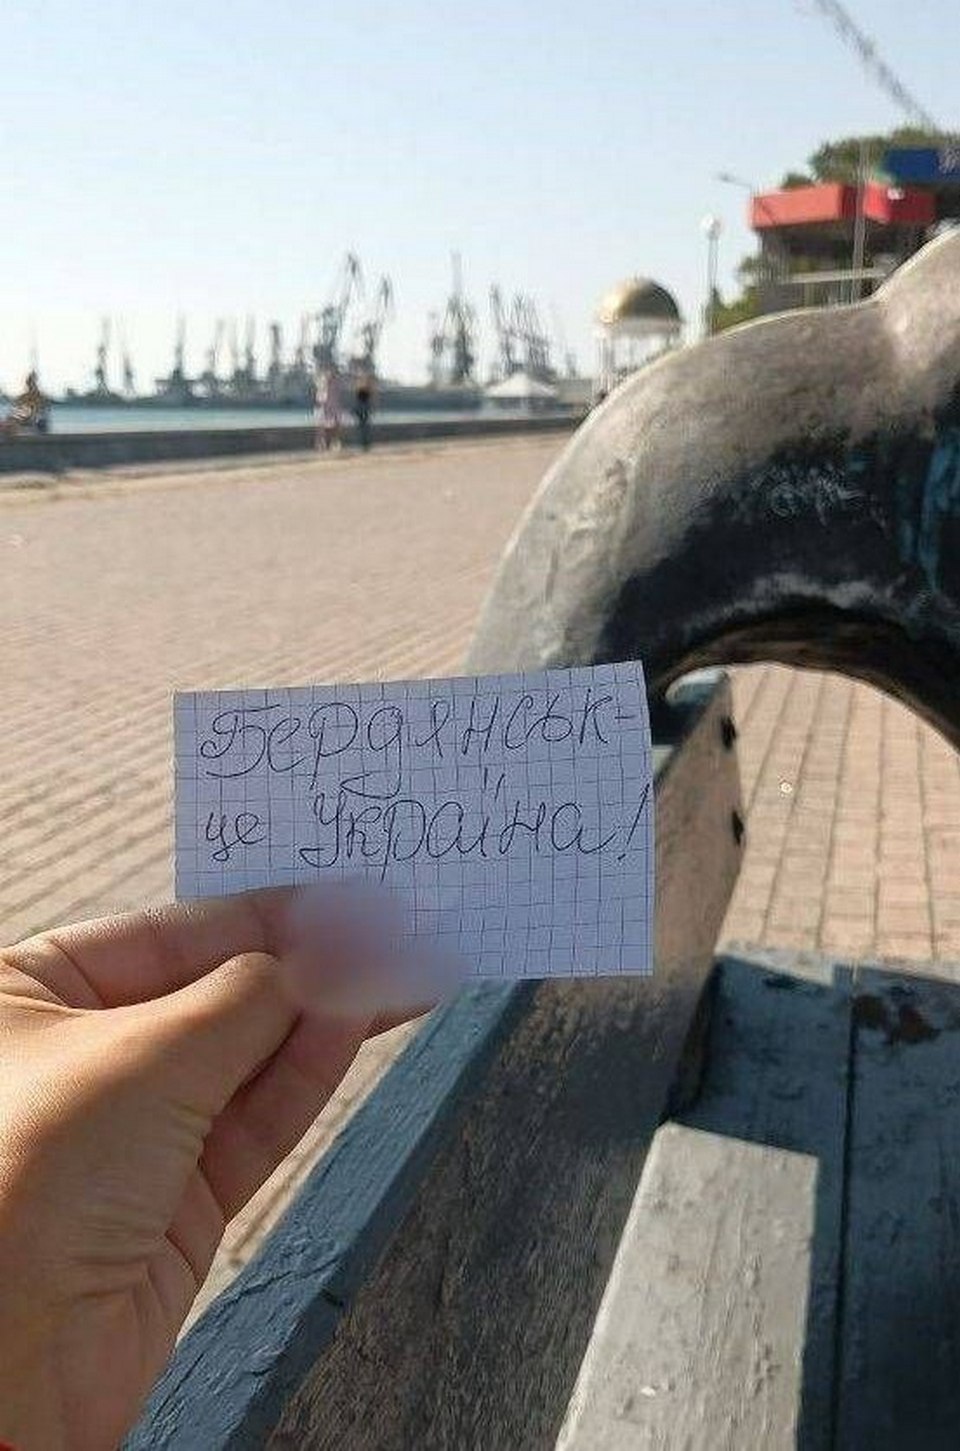 Бердянськ-
це Україна!